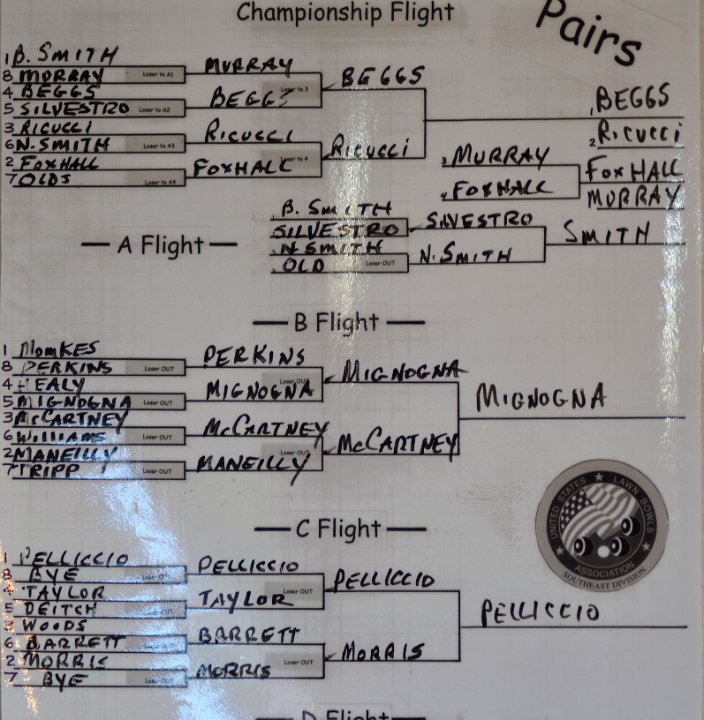 Championship Flight
Pairs
1 B. SMITH
8 MURRAY Loser to A1
4 BEGGS
5 SILVESTRO Loser to A2
3 RICUCCI
6 N. SMITH Loser to A3
2 FOXHALL
7 OLDS Loser to A4
MURRAY
BEGGS Loser to 3
RICUCCI
FOXHALL Loser to 4
BEGGS
RICUCCI
1 BEGGS
2 RICUCCI
MURRAY
FOXHALL
FOXHALL
MURRAY
A Flight
B. SMITH
SILVESTRO
N SMITH
OLD Loser OUT
SILVESTRO
N. SMITH
SMITH
B Flight
1 MOMKES
8 PERKINS Loser OUT
4 HEALY
5 MIGNOGNA Loser OUT
3 McCARTNEY
6 WILLIAMS Loser OUT
2 MANEILLY
7 TRIPP Loser OUT
PERKINS
MIGNOGNA Loser OUT
McCARTNEY
MANEILLY Loser OUT
MIGNOGNA
McCARTNEY
MIGNOGNA
UNITED STATES LAWN BOWLS
ASSOCIATION
SOUTHEAST DIVISION
C Flight
1 PELLICCIO
8 BYE Loser OUT
4 TAYLOR
5 DEITCH Loser OUT
3 WOODS
6 BARRETT Loser OUT
2 MORRIS
7 BYE Loser OUT
PELLICCIO
TAYLOR Loser OUT
BARRETT
MORRIS Loser OUT
PELLICCIO
MORRIS
PELLICCIO
D Flight